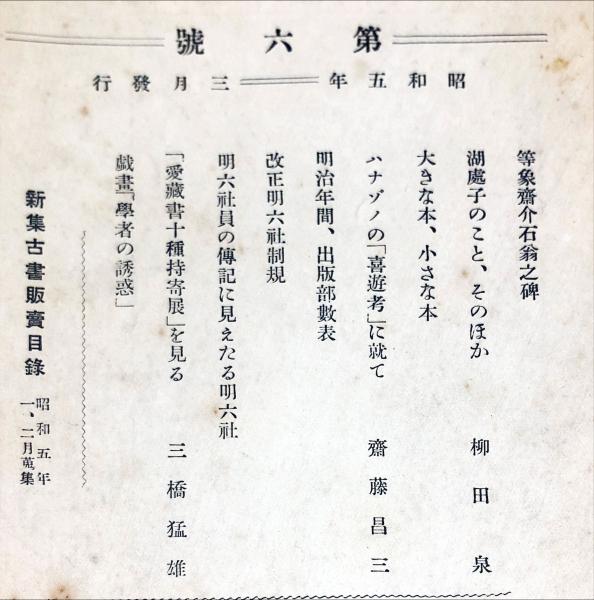 第六號
昭和五年三月發行
等象齋介石翁之碑
湖處子のこと、そのほか 柳田泉
大きな本、小さな本
ハナゾノの「喜遊考」に就て 齋藤昌三
明治年間、出版部數表
改正明六社制規
明六社員の傳記に見えたる明六社
「愛藏書十種持寄展」を見る 三橋猛雄
戯畫「學者の誘惑」
新集古書販賣目錄 昭和五年
一、二月蒐集